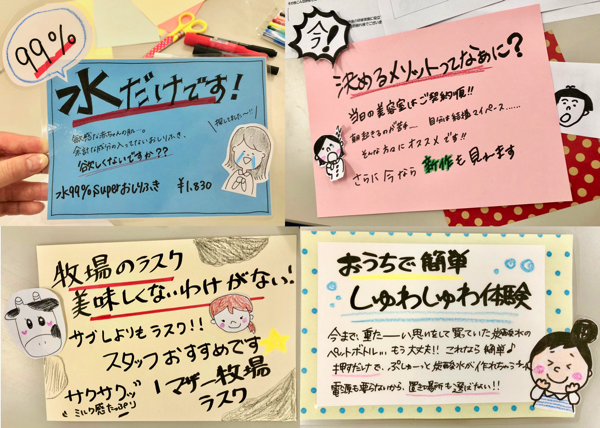 99%
水だけです!
敏感な赤ちゃんの肌…。
余計な成分の入ってないおしりふき、
欲しくないですか??
探してました〜♡
水99%Superおしりふき ¥1,830
今!
決めるメリットってなぁに?
当日の美容室はご契約順!!
朝起きるのが苦手… 自分は結構マイペース……
そんな方々にオススメです!!
さらに今なら新作も見れます
牧場のラスク
美味しくないわけがない!
サブレよりもラスク!!
スタッフおすすめです
サクサクッ
ミルク感たっぷり
マザー牧場
ラスク
おうちで簡単
しゅわしゅわ体験
今まで、重た―い思いをして買っていた炭酸水の
ペットボトル。もう大丈夫!! これなら簡単♪
押すだけで、ぷしゅーっと炭酸水が作れちゃう
電源も要らないから、置き場所も選ばない!!